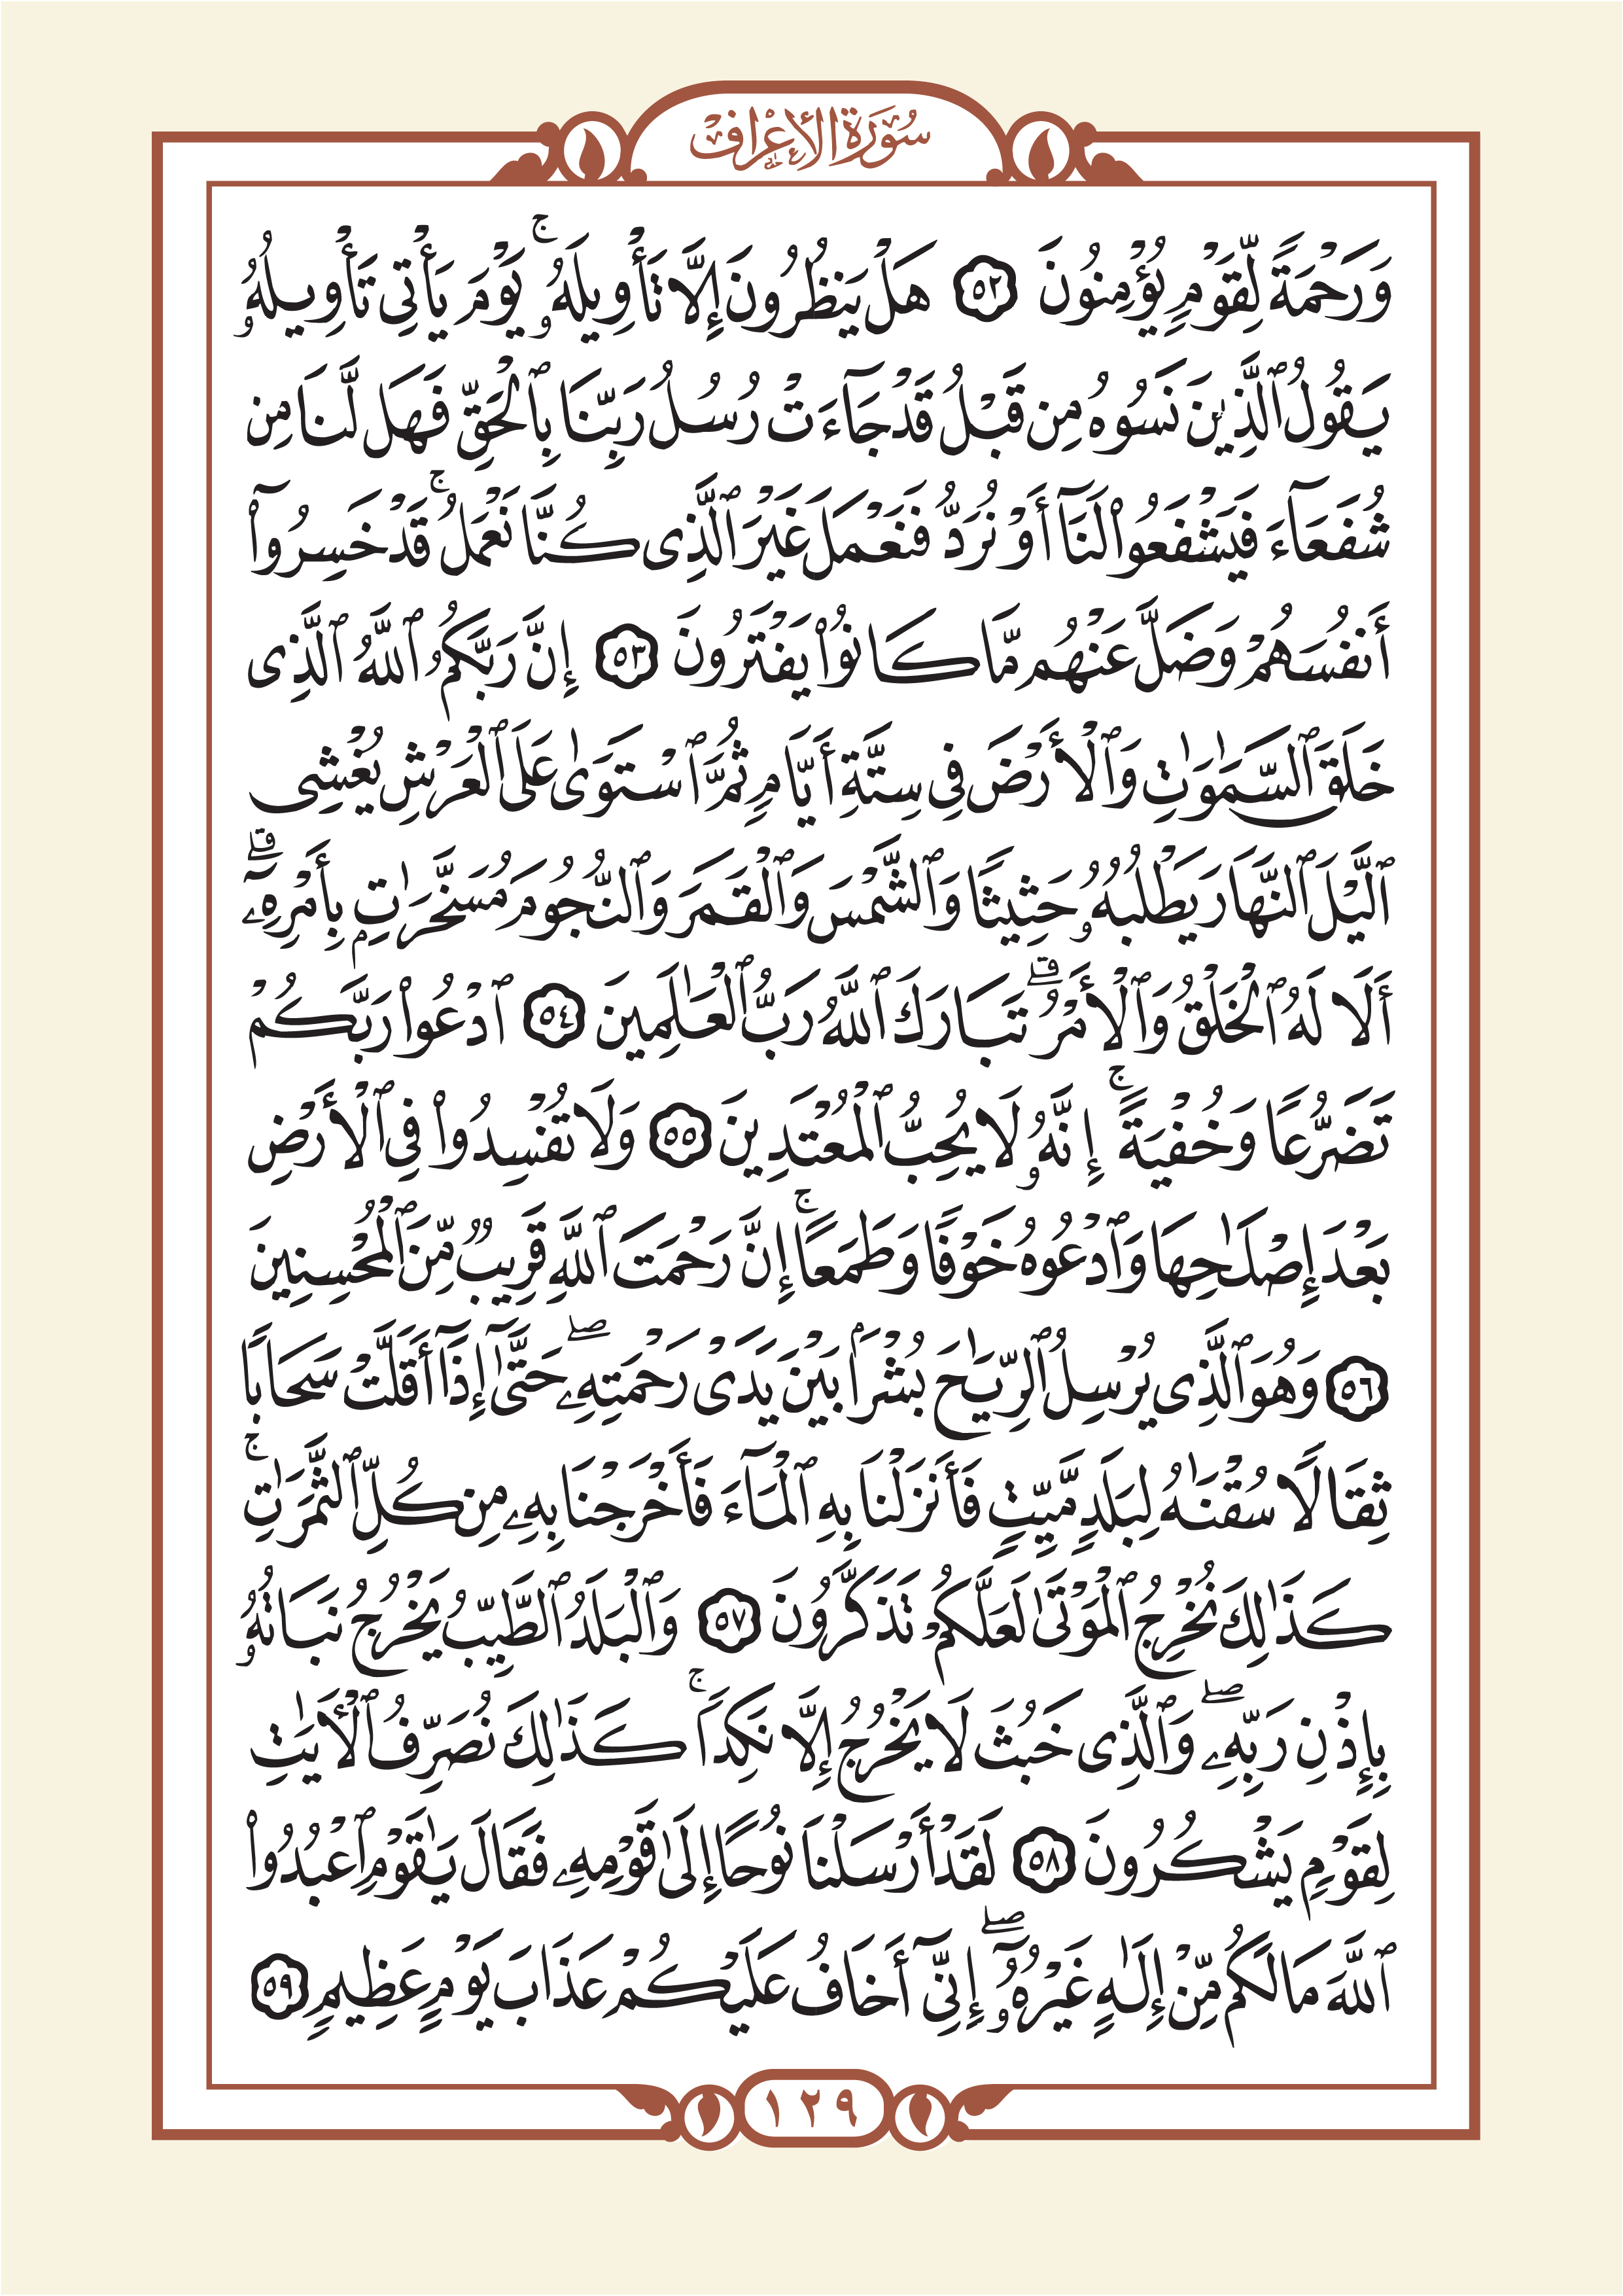 سُورَةُ الأَعْرَافِ
وَرَحْمَةً لِّقَوْمٍ يُؤْمِنُونَ ٥٢ هَلْ يَنظُرُونَ إِلَّا تَأْوِيلَهُۥ ۚ يَوْمَ يَأْتِى تَأْوِيلُهُۥ
يَقُولُ ٱلَّذِينَ نَسُوهُ مِن قَبْلُ قَدْ جَآءَتْ رُسُلُ رَبِّنَا بِٱلْحَقِّ فَهَل لَّنَا مِن
شُفَعَآءَ فَيَشْفَعُوا۟ لَنَآ أَوْ نُرَدُّ فَنَعْمَلَ غَيْرَ ٱلَّذِى كُنَّا نَعْمَلُ ۚ قَدْ خَسِرُوٓا۟
أَنفُسَهُمْ وَضَلَّ عَنْهُم مَّا كَانُوا۟ يَفْتَرُونَ ٥٣ إِنَّ رَبَّكُمُ ٱللَّهُ ٱلَّذِى
خَلَقَ ٱلسَّمَٰوَٰتِ وَٱلْأَرْضَ فِى سِتَّةِ أَيَّامٍ ثُمَّ ٱسْتَوَىٰ عَلَى ٱلْعَرْشِ يُغْشِى
ٱلَّيْلَ ٱلنَّهَارَ يَطْلُبُهُۥ حَثِيثًا وَٱلشَّمْسَ وَٱلْقَمَرَ وَٱلنُّجُومَ مُسَخَّرَٰتٍۭ بِأَمْرِهِۦٓ ۗ
أَلَا لَهُ ٱلْخَلْقُ وَٱلْأَمْرُ ۗ تَبَارَكَ ٱللَّهُ رَبُّ ٱلْعَٰلَمِينَ ٥٤ ٱدْعُوا۟ رَبَّكُمْ
تَضَرُّعًا وَخُفْيَةً ۚ إِنَّهُۥ لَا يُحِبُّ ٱلْمُعْتَدِينَ ٥٥ وَلَا تُفْسِدُوا۟ فِى ٱلْأَرْضِ
بَعْدَ إِصْلَٰحِهَا وَٱدْعُوهُ خَوْفًا وَطَمَعًا ۚ إِنَّ رَحْمَتَ ٱللَّهِ قَرِيبٌ مِّنَ ٱلْمُحْسِنِينَ
٥٦ وَهُوَ ٱلَّذِى يُرْسِلُ ٱلرِّيَٰحَ بُشْرًۢا بَيْنَ يَدَىْ رَحْمَتِهِۦ ۖ حَتَّىٰٓ إِذَآ أَقَلَّتْ سَحَابًا
ثِقَالًا سُقْنَٰهُ لِبَلَدٍ مَّيِّتٍ فَأَنزَلْنَا بِهِ ٱلْمَآءَ فَأَخْرَجْنَا بِهِۦ مِن كُلِّ ٱلثَّمَرَٰتِ ۚ
كَذَٰلِكَ نُخْرِجُ ٱلْمَوْتَىٰ لَعَلَّكُمْ تَذَكَّرُونَ ٥٧ وَٱلْبَلَدُ ٱلطَّيِّبُ يَخْرُجُ نَبَاتُهُۥ
بِإِذْنِ رَبِّهِۦ ۖ وَٱلَّذِى خَبُثَ لَا يَخْرُجُ إِلَّا نَكِدًا ۚ كَذَٰلِكَ نُصَرِّفُ ٱلْءَايَٰتِ
لِقَوْمٍ يَشْكُرُونَ ٥٨ لَقَدْ أَرْسَلْنَا نُوحًا إِلَىٰ قَوْمِهِۦ فَقَالَ يَٰقَوْمِ ٱعْبُدُوا۟
ٱللَّهَ مَا لَكُم مِّنْ إِلَٰهٍ غَيْرُهُۥٓ ۖ إِنِّىٓ أَخَافُ عَلَيْكُمْ عَذَابَ يَوْمٍ عَظِيمٍ ٥٩
١٢٩